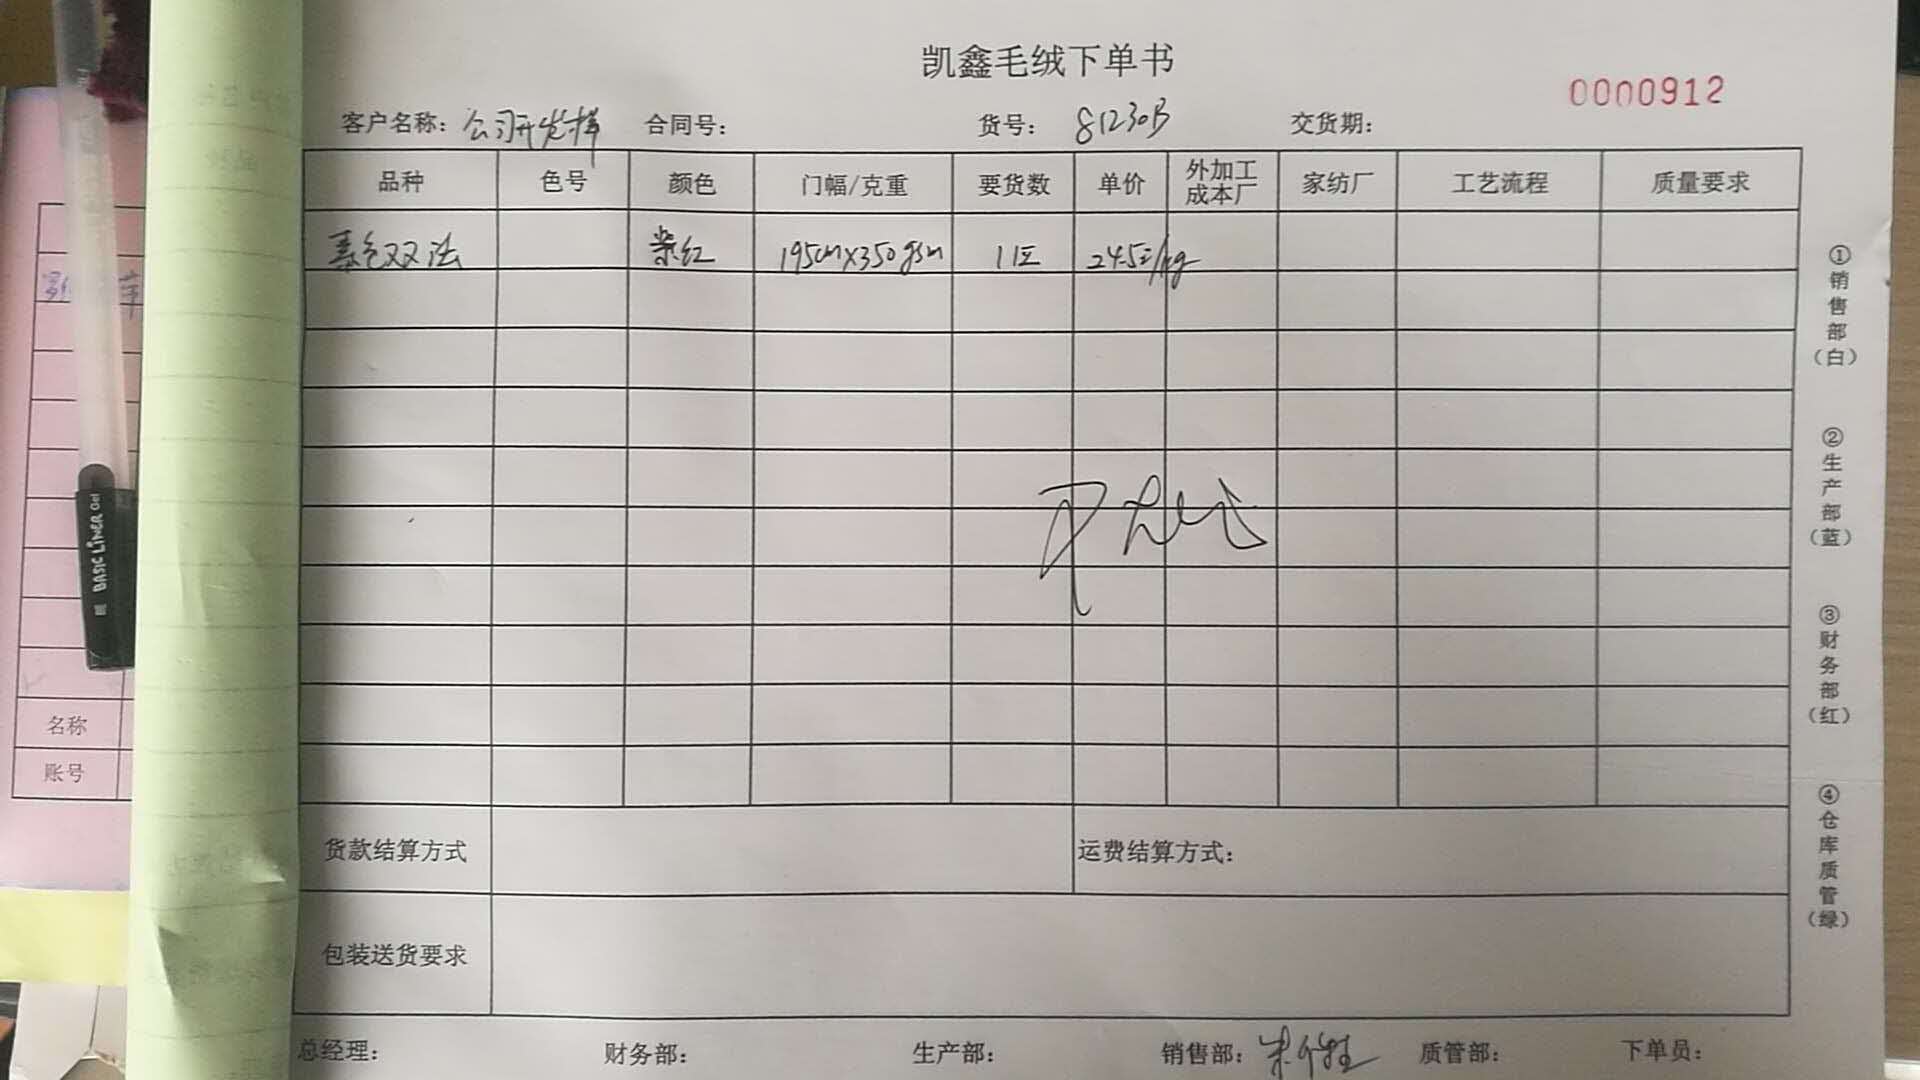 凯鑫毛绒下单书
0000912
客户名称：公司开发样 合同号： 货号：81230B 交货期：
品种 色号 颜色 门幅/克重 要货数 单价 外加工成本厂 家纺厂 工艺流程 质量要求
素色双法 紫红 195cm×350gsm 1匹 24.5元/kg
货款结算方式 运费结算方式：
包装送货要求
总经理： 财务部： 生产部： 销售部： 质管部： 下单员：
①销售部（白）
②生产部（蓝）
③财务部（红）
④仓库质管（绿）
名称
账号
BASIC LINER